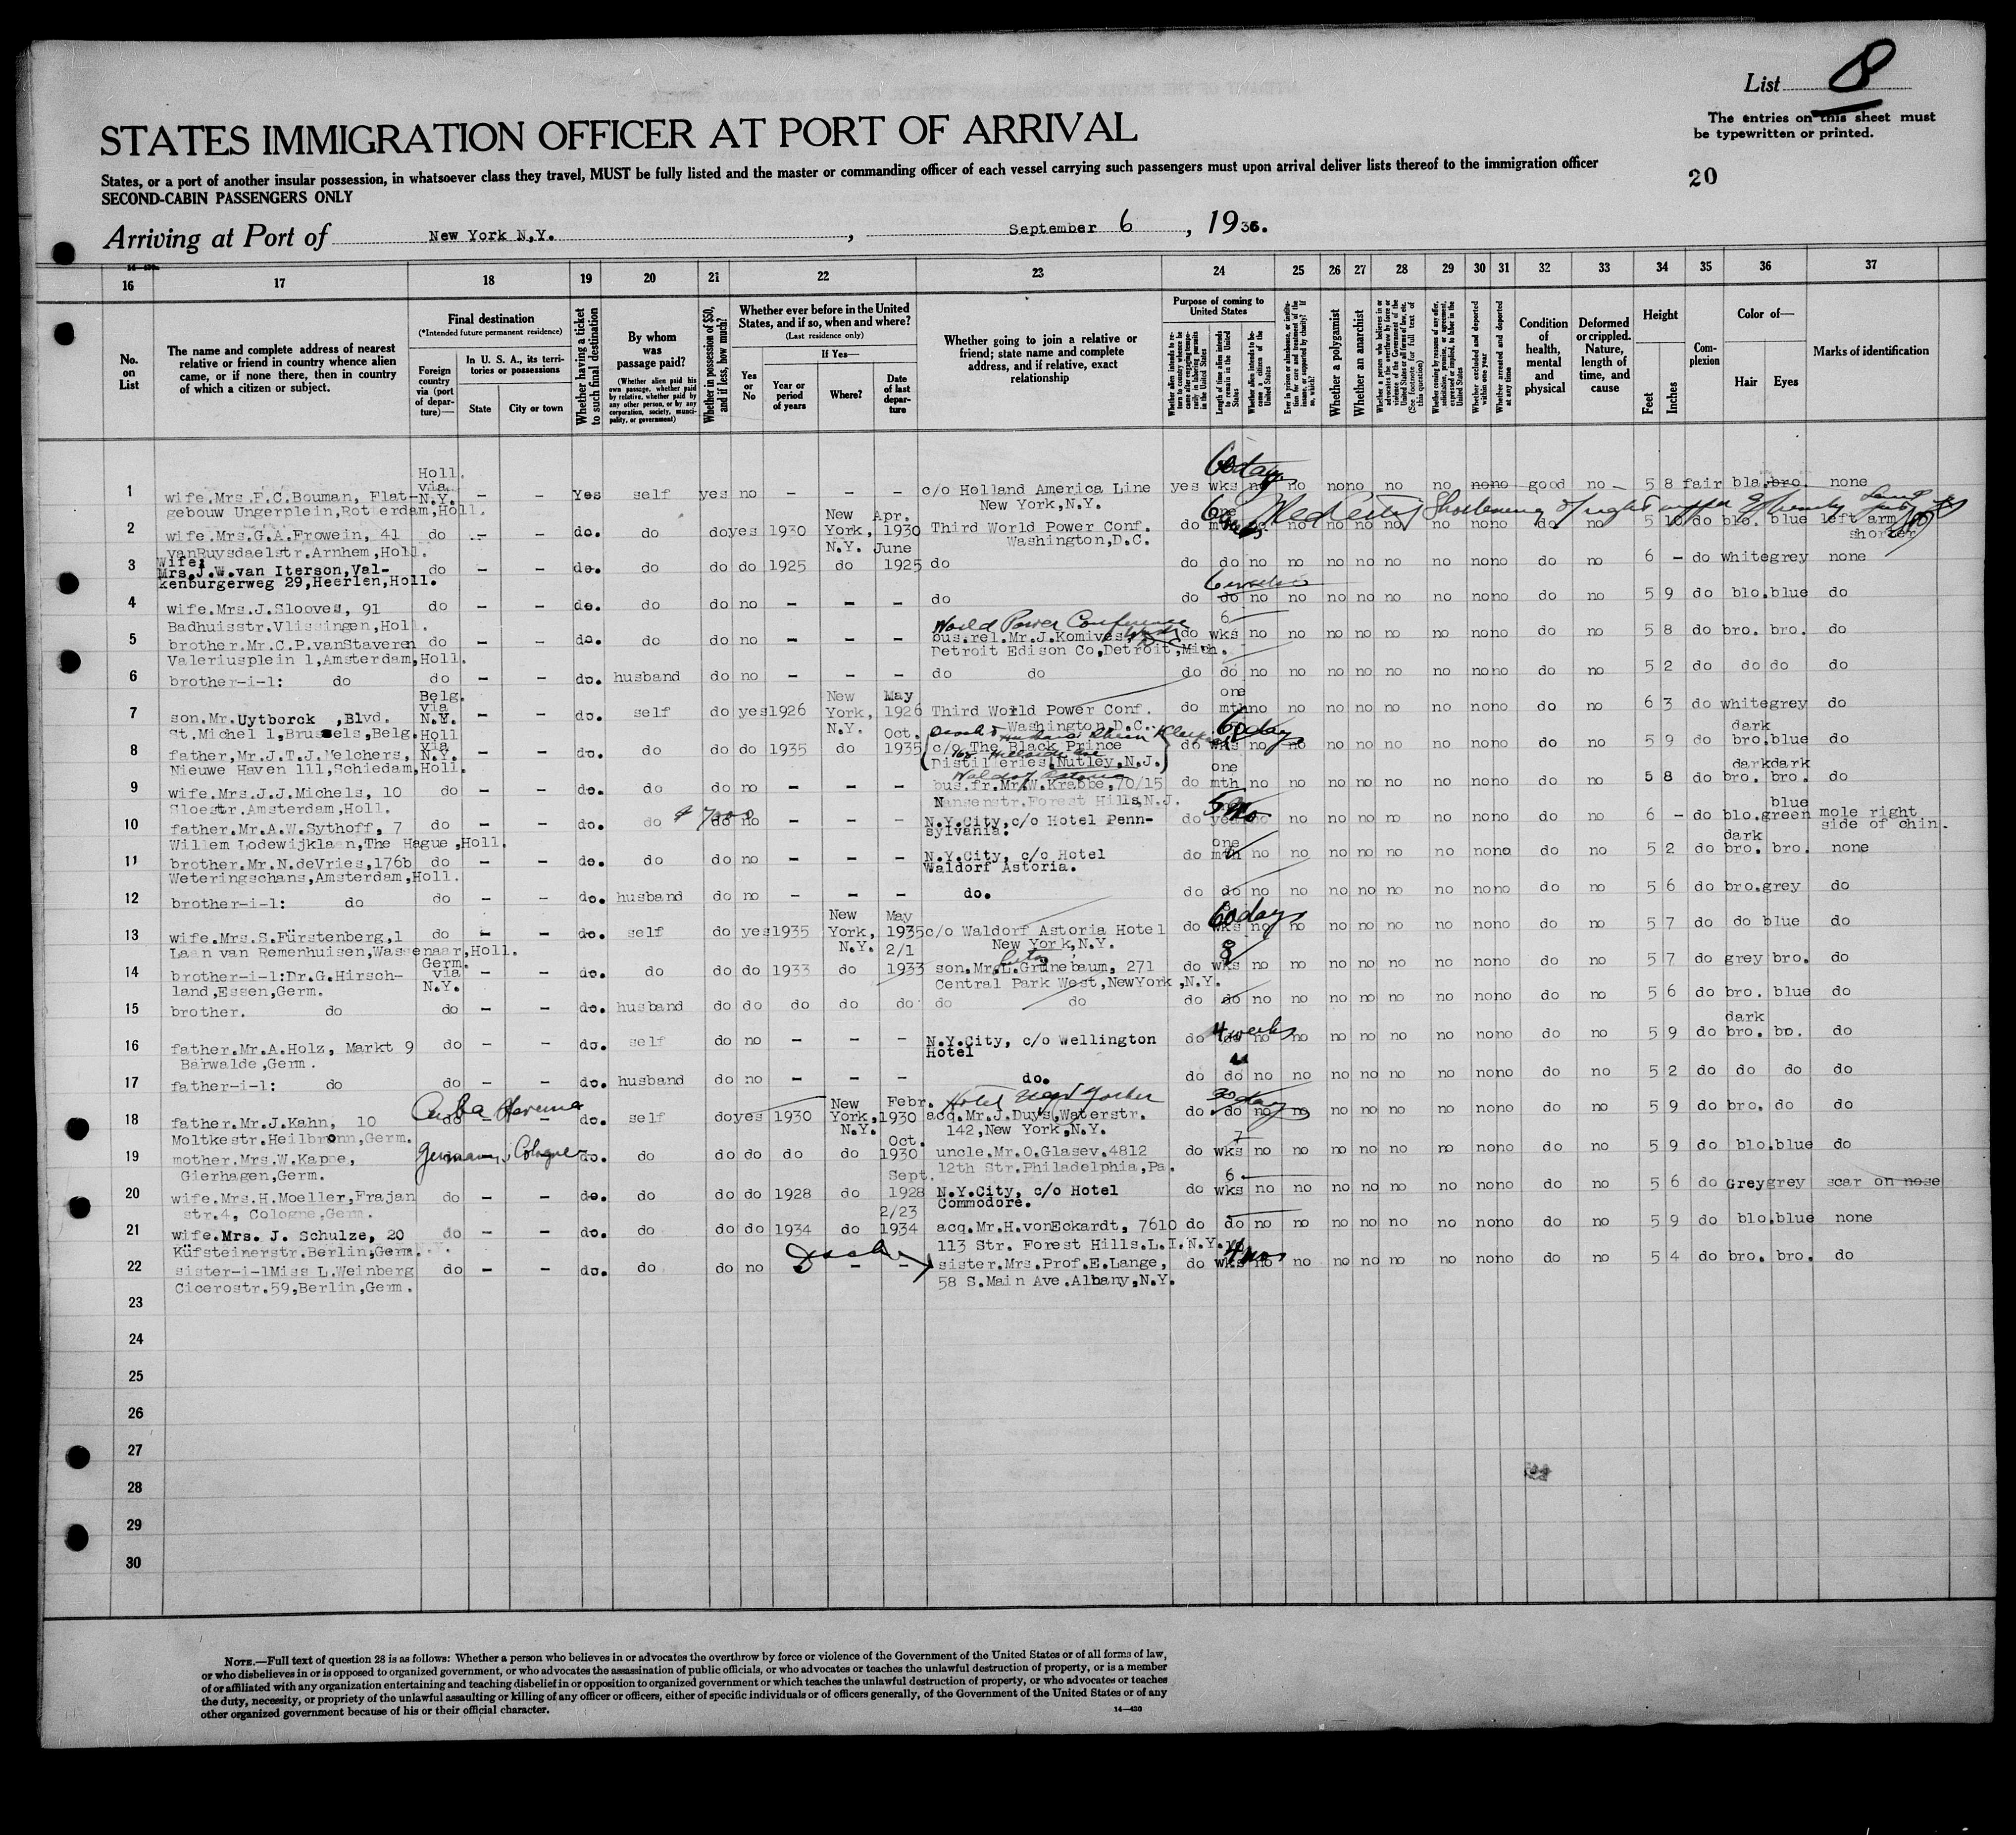 List 8
The entries on this sheet must
be typewritten or printed.
STATES IMMIGRATION OFFICER AT PORT OF ARRIVAL
States, or a port of another insular possession, in whatsoever class they travel, MUST be fully listed and the master or commanding officer of each vessel carrying such passengers must upon arrival deliver lists thereof to the immigration officer
SECOND-CABIN PASSENGERS ONLY
20
Arriving at Port of New York N.Y. , September 6 , 1936.
16 17 18 19 20 21 22 23 24 25 26 27 28 29 30 31 32 33 34 35 36 37
No. on List
The name and complete address of nearest relative or friend in country whence alien came, or if none there, then in country of which a citizen or subject.
Final destination
(*Intended future permanent residence)
Foreign country via (port of departure)—
In U. S. A., its territories or possessions
State City or town
Whether having a ticket to such final destination
By whom was passage paid?
(Whether alien paid his own passage, whether paid by relative, whether paid by any other person, or by any corporation, society, municipality, or government)
Whether in possession of $50, and if less, how much?
Whether ever before in the United States, and if so, when and where?
(Last residence only)
Yes or No
If Yes—
Year or period of years Where? Date of last departure
Whether going to join a relative or friend; state name and complete address, and if relative, exact relationship
Purpose of coming to United States
Whether alien intends to return to country whence he came after engaging temporarily in laboring pursuits in the United States
Length of time alien intends to remain in the United States
Whether alien intends to become a citizen of the United States
Ever in prison or almshouse, or institution for care and treatment of the insane, or supported by charity? If so, which?
Whether a polygamist
Whether an anarchist
Whether a person who believes in or advocates the overthrow by force or violence of the Government of the United States or all forms of law, etc. (See footnote for full text of this question)
Whether coming by reasons of any offer, solicitation, promise, or agreement, expressed or implied, to labor in the United States
Whether excluded and deported within one year
Whether arrested and deported at any time
Condition of health, mental and physical
Deformed or crippled. Nature, length of time, and cause
Height
Feet Inches
Complexion
Color of—
Hair Eyes
Marks of identification
1 wife.Mrs.F.C.Bouman, Flat- Holl. via N.Y. – – Yes self yes no – – – c/o Holland America Line yes wks no no no no no no no no good no – 5 8 fair bla. bro. none
60 days
gebouw Ungerplein,Rotterdam,Holl. New York,N.Y.
2 wife.Mrs.G.A.Frowein, 41 do – – do. do do yes 1930 New York, N.Y. Apr. 1930 Third World Power Conf. do one mth no no no no no no no no do no 5 10 do blo. blue left arm shorter
Med Cert Shortening of right upper
vanRuysdaelstr.Arnhem,Holl. Washington,D.C.
3 wife: Mrs.J.W.van Iterson,Val- do – – do. do do do 1925 do June 1925 do do do no no no no no no no no do no 6 – do white grey none
kenburgerweg 29,Heerlen,Holl.
4 wife.Mrs.J.Slooves, 91 do – – do. do do no – – – do do do no no no no no no no no do no 5 9 do blo. blue do
6 weeks
Badhuisstr.Vlissingen,Holl.
World Power Conference
5 brother.Mr.C.P.vanStaveren do – – do. do do no – – – bus.rel.Mr.J.Komives do 6 wks no no no no no no no no do no 5 8 do bro. bro. do
Valeriusplein 1,Amsterdam,Holl. Detroit Edison Co,Detroit,Mich.
6 brother-i-l: do do – – do. husband do no – – – do do do do no no no no no no no no do no 5 2 do do do do
7 son.Mr.Uytborck ,Blvd. Belg. via N.Y. – – do. self do yes 1926 New York, N.Y. May 1926 Third World Power Conf. do one mth no no no no no no no no do no 6 3 do white grey do
St.Michel 1,Brussels,Belg. Washington,D.C.
8 father,Mr.J.T.J.Melchers, Holl via N.Y. – – do. do do do 1935 do Oct. 1935 c/o The Black Prince do wks no no no no no no no no do no 5 9 do dark bro. blue do
60 days
Nieuwe Haven 111,Schiedam,Holl. Distilleries,Nutley,N.J.
Waldorf Astoria
9 wife.Mrs.J.J.Michels, 10 do – – do. do do no – – – bus.fr.Mr.W.Krabbe,70/15 do one mth no no no no no no no no do no 5 8 do dark bro. dark bro. do
Sloestr.Amsterdam,Holl. Nansenstr.Forest Hills,N.J.
10 father.Mr.A.W.Sythoff, 7 do – – do. do do no – – – N.Y.City,c/o Hotel Penn- do year no no no no no no no no do no 6 – do blo. blue green mole right side of chin.
Willem Lodewijklaan,The Hague,Holl. sylvania.
11 brother.Mr.N.deVries,176b do – – do. do do no – – – N.Y.City, c/o Hotel do one mth no no no no no no no no do no 5 2 do dark bro. bro. none
Weteringschans,Amsterdam,Holl. Waldorf Astoria.
12 brother-i-l: do do – – do. husband do no – – – do. do do no no no no no no no no do no 5 6 do bro. grey do
13 wife.Mrs.S.Fürstenberg,1 do – – do. self do yes 1935 New York, N.Y. May 1935 c/o Waldorf Astoria Hotel do wks no no no no no no no no do no 5 7 do do blue do
60 days
Laan van Remenhuisen,Wassenaar,Holl. New York,N.Y.
14 brother-i-l:Dr.G.Hirsch- Germ. via N.Y. – – do. do do do 1933 do 2/1 1933 son.Mr.L.Grünebaum, 271 do 8 wks no no no no no no no no do no 5 7 do grey bro. do
land,Essen,Germ. Central Park West,NewYork,N.Y.
15 brother. do do – – do. husband do do do do do do do do do no no no no no no no no do no 5 6 do bro. blue do
16 father.Mr.A.Holz, Markt 9 do – – do. self do no – – – N.Y.City, c/o Wellington do do no no no no no no no no do no 5 9 do dark bro. bo. do
4 weeks
Barwalde,Germ. Hotel
17 father-i-l: do do – – do. husband do no – – – do. do do no no no no no no no no do no 5 2 do do do do
Cuba Havana
Hotel New Yorker
18 father.Mr.J.Kahn, 10 do – – do. self do yes 1930 New York, N.Y. Febr. 1930 acq.Mr.J.Duys,Waterstr. do do no no no no no no no no do no 5 9 do bro. do do
30 days
Moltkestr.Heilbronn,Germ. 142,New York,N.Y.
Germany, Cologne
19 mother.Mrs.W.Kappe, do. do do do do do Oct. 1930 uncle.Mr.O.Glasev.4812 do 7 wks no no no no no no no no do no 5 9 do blo. blue do
Gierhagen,Germ. 12th Str.Philadelphia,Pa.
20 wife.Mrs.H.Moeller,Frajan do – – do. do do do 1928 do Sept. 1928 N.Y.City, c/o Hotel do 6 wks no no no no no no no no do no 5 6 do Grey grey scar on nose
str.4, Cologne,Germ. Commodore.
21 wife.Mrs. J. Schulze, 20 do – – do. do do do 1934 do 2/23 1934 acq.Mr.H.vonEckardt, 7610 do do no no no no no no no no do no 5 9 do blo. blue none
Küfsteinerstr.Berlin,Germ. 113 Str. Forest Hills.L.I.N.Y.
22 sister-i-lMiss L.Weinberg do – – do. do do no – – sister.Mrs.Prof.E.Lange, do wks no no no no no no no no do no 5 4 do bro. bro. do
Cicerostr.59,Berlin,Germ. 58 S.Main Ave.Albany,N.Y.
23
24
25
26
27
28
29
30
NOTE.—Full text of question 28 is as follows: Whether a person who believes in or advocates the overthrow by force or violence of the Government of the United States or of all forms of law,
or who disbelieves in or is opposed to organized government, or who advocates the assassination of public officials, or who advocates or teaches the unlawful destruction of property, or is a member
of or affiliated with any organization entertaining and teaching disbelief in or opposition to organized government or which teaches the unlawful destruction of property, or who advocates or teaches
the duty, necessity, or propriety of the unlawful assaulting or killing of any officer or officers, either of specific individuals or of officers generally, of the Government of the United States or of any
other organized government because of his or their official character.
14—430